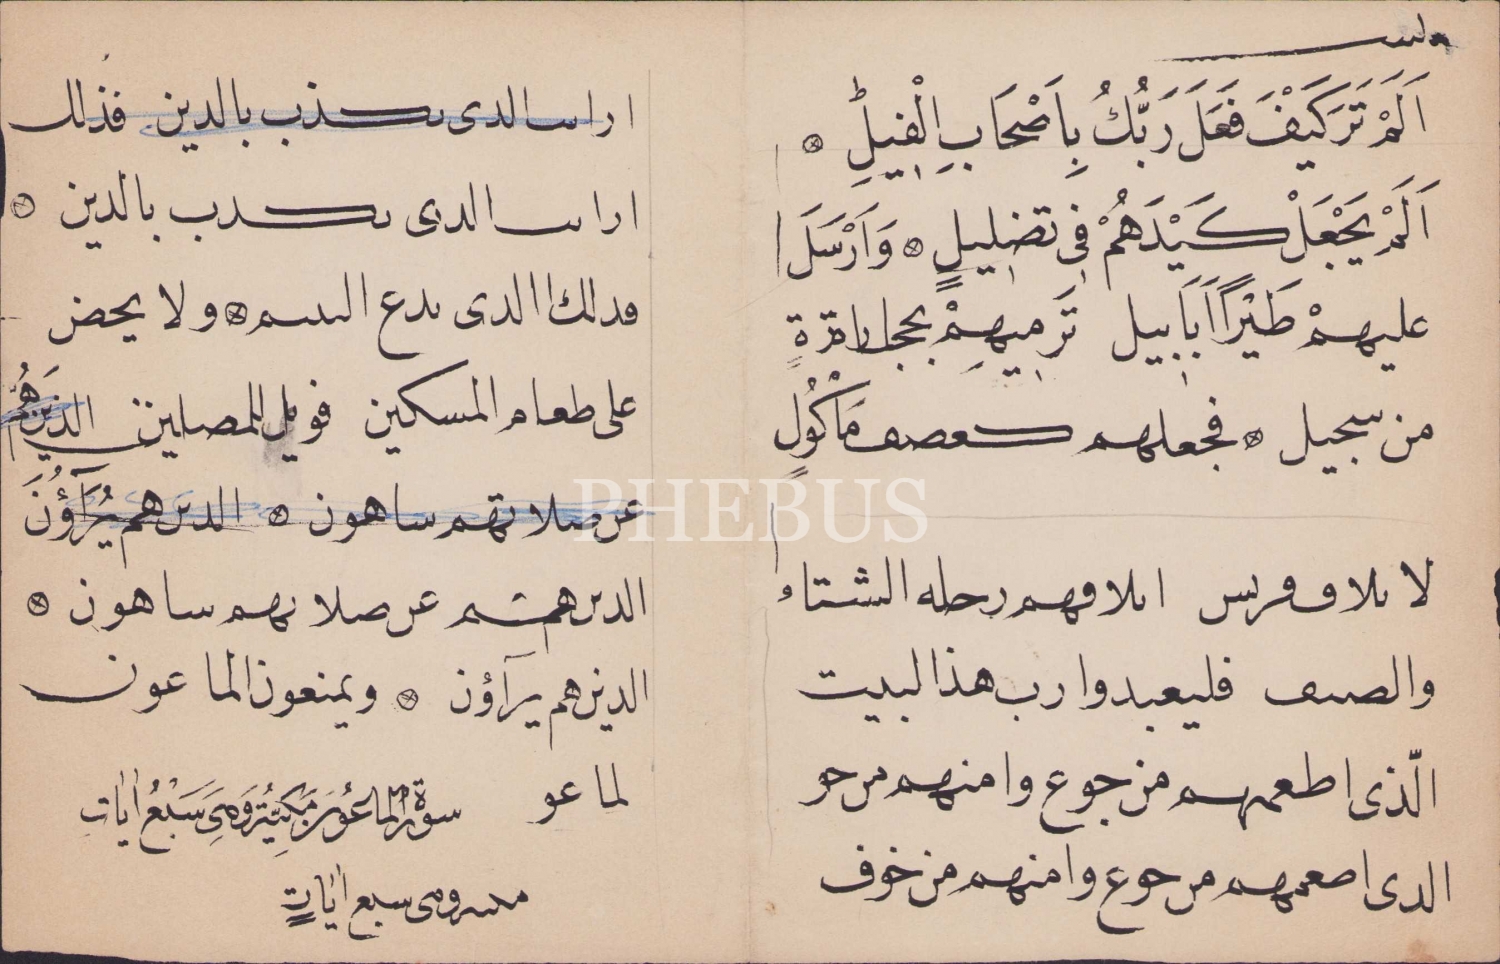 بسـ
اَلَمْ تَرَ كَيْفَ فَعَلَ رَبُّكَ بِاَصْحَابِ الْفِيلِ
اَلَمْ يَجْعَلْ كَيْدَهُمْ فِي تَضْلِيلٍ وَاَرْسَلَ
عليهمْ طَيْرًا اَبَابيل تَرْمِيهِمْ بحجارة
من سجيل فجعلهم كعصف مَأْكُولٍ
لا ىلاف فرىس اىلافهم رحله الشتاء
والصىف فليعبدوا رب هذا لبيت
الّذى اطعمهم من جوع وامنهم من حو
الدى اصعمهم من حوع وامنهم من خوف
اراىىالدى ىكذب بالدين فذلك
اراىىالدى ىكدب بالدين
فدلك الدى ىدع الىىىم ولا يحض
على طعام المسكين فويل للمصلين الذين هُمْ
عن صلاتهم ساهون الدىن هم يُرَآؤُنَ
الدىن هم عن صلاىهم ساهون
الدين هم يرآؤن ويمنعون الما عون
لما عو سورة الماعون مَكيّة وَهِىَ سَبْعُ اٰيات
مكىه وهى سبع اٰيَاتٍ
PHEBUS